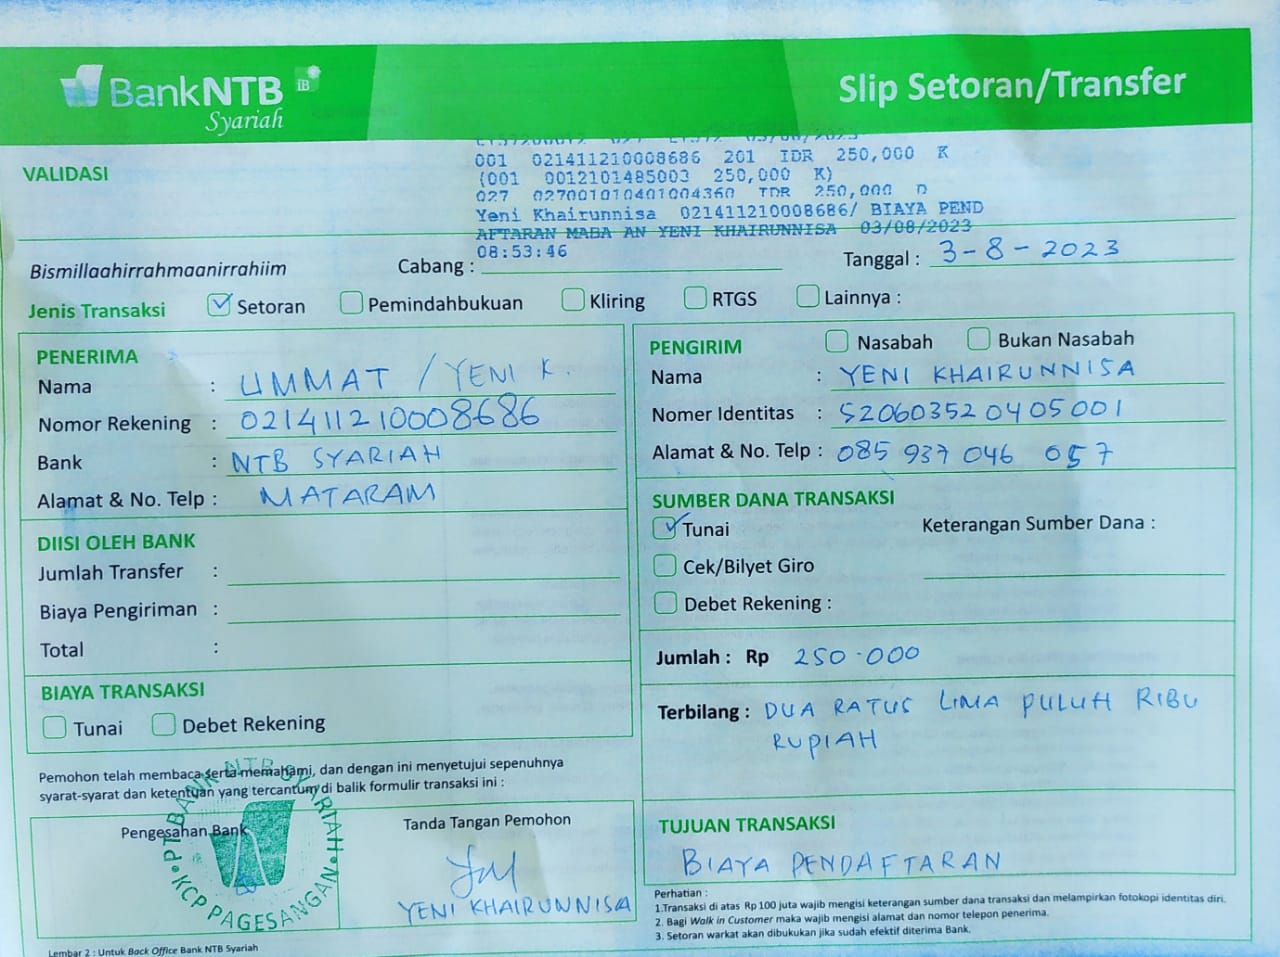 BankNTB iB
Syariah
Slip Setoran/Transfer
VALIDASI
03/08/2023
001 021411210008686 201 IDR 250,000 K
(001 0012101485003 250,000 K)
027 027001010401004360 IDR 250,000 D
Yeni Khairunnisa 021411210008686/ BIAYA PEND
AFTARAN MABA AN YENI KHAIRUNNISA 03/08/2023
08:53:46
Bismillaahirrahmaanirrahiim
Cabang :
Tanggal : 3-8-2023
Jenis Transaksi Setoran Pemindahbukuan Kliring RTGS Lainnya :
PENERIMA
Nama : UMMAT / YENI K.
Nomor Rekening : 021411210008686
Bank : NTB SYARIAH
Alamat & No. Telp : MATARAM
DIISI OLEH BANK
Jumlah Transfer :
Biaya Pengiriman :
Total :
BIAYA TRANSAKSI
Tunai Debet Rekening
Pemohon telah membaca serta memahami, dan dengan ini menyetujui sepenuhnya
syarat-syarat dan ketentuan yang tercantum di balik formulir transaksi ini :
Pengesahan Bank
PT. BANK NTB SYARIAH
KCP PAGESANGAN
Tanda Tangan Pemohon
YENI KHAIRUNNISA
Lembar 2 : Untuk Back Office Bank NTB Syariah
PENGIRIM Nasabah Bukan Nasabah
Nama : YENI KHAIRUNNISA
Nomer Identitas : 520603520405001
Alamat & No. Telp : 085 937 046 057
SUMBER DANA TRANSAKSI
Tunai
Keterangan Sumber Dana :
Cek/Bilyet Giro
Debet Rekening :
Jumlah : Rp 250.000
Terbilang : DUA RATUS LIMA PULUH RIBU
RUPIAH
TUJUAN TRANSAKSI
BIAYA PENDAFTARAN
Perhatian :
1.Transaksi di atas Rp 100 juta wajib mengisi keterangan sumber dana transaksi dan melampirkan fotokopi identitas diri.
2. Bagi Walk in Customer maka wajib mengisi alamat dan nomor telepon penerima.
3. Setoran warkat akan dibukukan jika sudah efektif diterima Bank.